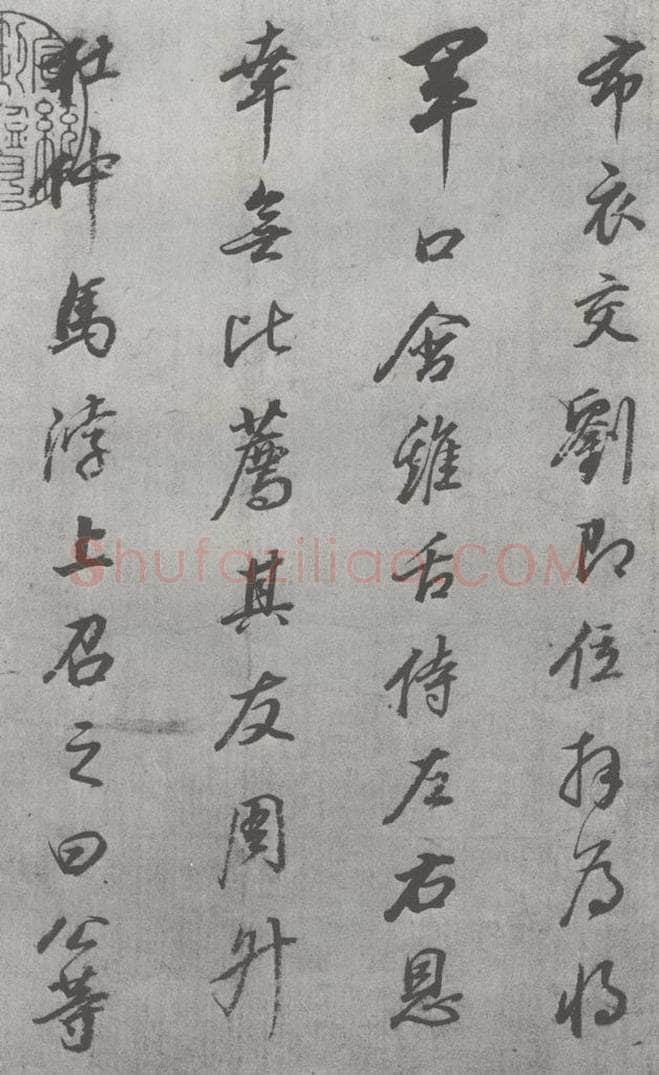 布衣交劉即位拜為將
軍口含雞舌侍左右恩
幸無比薦其友周升
杜仲馬浡上召之曰公等
Shufaziliao.COM